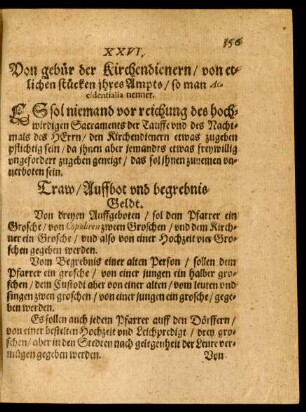 356
XXVI.
Von gebür der Kirchendienern / von et-
lichen stücken jhres Ampts / so man Ac-
cidentalia nennet.
ES sol niemand vor reichung des hoch-
wirdigen Sacraments der Tauffe vnd des Nacht-
mals des HErrn / den Kirchendienern etwas zugeben
pflichtig sein / da jhnen aber jemandts etwas freywillig
vngefordert zugeben geneigt / das sol jhnen zunemen vn-
uerboten sein.
Traw / Auffbot vnd begrebnis
Geldt.
Von dreyen Auffgeboten / sol dem Pfarrer ein
Grosche / von Copuliren zween Groschen / vnd dem Kirch-
ner ein Grosche / vnd also von einer Hochzeit vier Gro-
schen gegeben werden.
Vom Begrebnis einer alten Person / sollen dem
Pfarrer ein grosche / von einer jungen ein halber gro-
schen / dem Custodi aber von einer alten / vom leuten vnd
singen zween groschen / von einer jungen ein grosche / gege-
ben werden.
Es sollen auch jedem Pfarrer auff den Dörffern /
von einer bestelten Hochzeit vnd Leichpredigt / drey gro-
schen / aber in den Stedten nach gelegenheit der Leute ver-
mügen gegeben werden.
Von